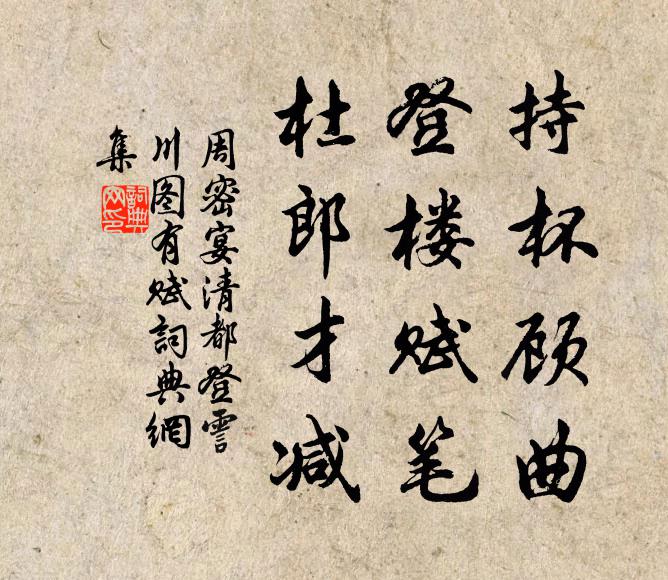 持杯顾曲
登楼赋笔
杜郎才减
周密宴清都登霅
川图有赋詞典網
集
詞典
网印